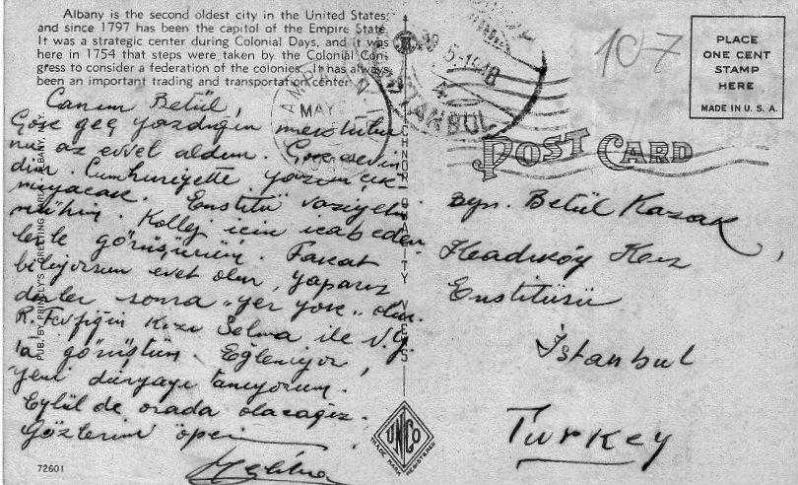 Albany is the second oldest city in the United States;
and since 1797 has been the capitol of the Empire State.
It was a strategic center during Colonial Days, and it was
here in 1754 that steps were taken by the Colonial Con-
gress to consider a federation of the colonies. It has always
been an important trading and transportation center.
Canım Betül,
Göze geç yazdığın mektubu
nu az evvel aldım. Çok sevin
dim. Cumhuriyette yazım çık
mıyacak. Enstitü vaziyeti
mühim. Kollej için icabeden
lerle görüşürüm. Fakat
biliyorsun evet olur, yaparız
derler sonra "yer yok" olur.
R. Tevfiğin kızı Selma ile N.Y.
ta görüştüm. Eğleniyor,
yeni dünyayı tanıyorum.
Eylül de orada olacağız.
Gözlerini öper
72601
PUB. BY
GREETING CARDS
ALBANY
UNCO
TRADE MARK REGISTERED
MAY
5-1948
ISTANBUL
107
PLACE
ONE CENT
STAMP
HERE
MADE IN U. S. A.
POST CARD
Byn. Betül Kazak
Kadıköy Kız
Enstitüsü
İstanbul
Turkey